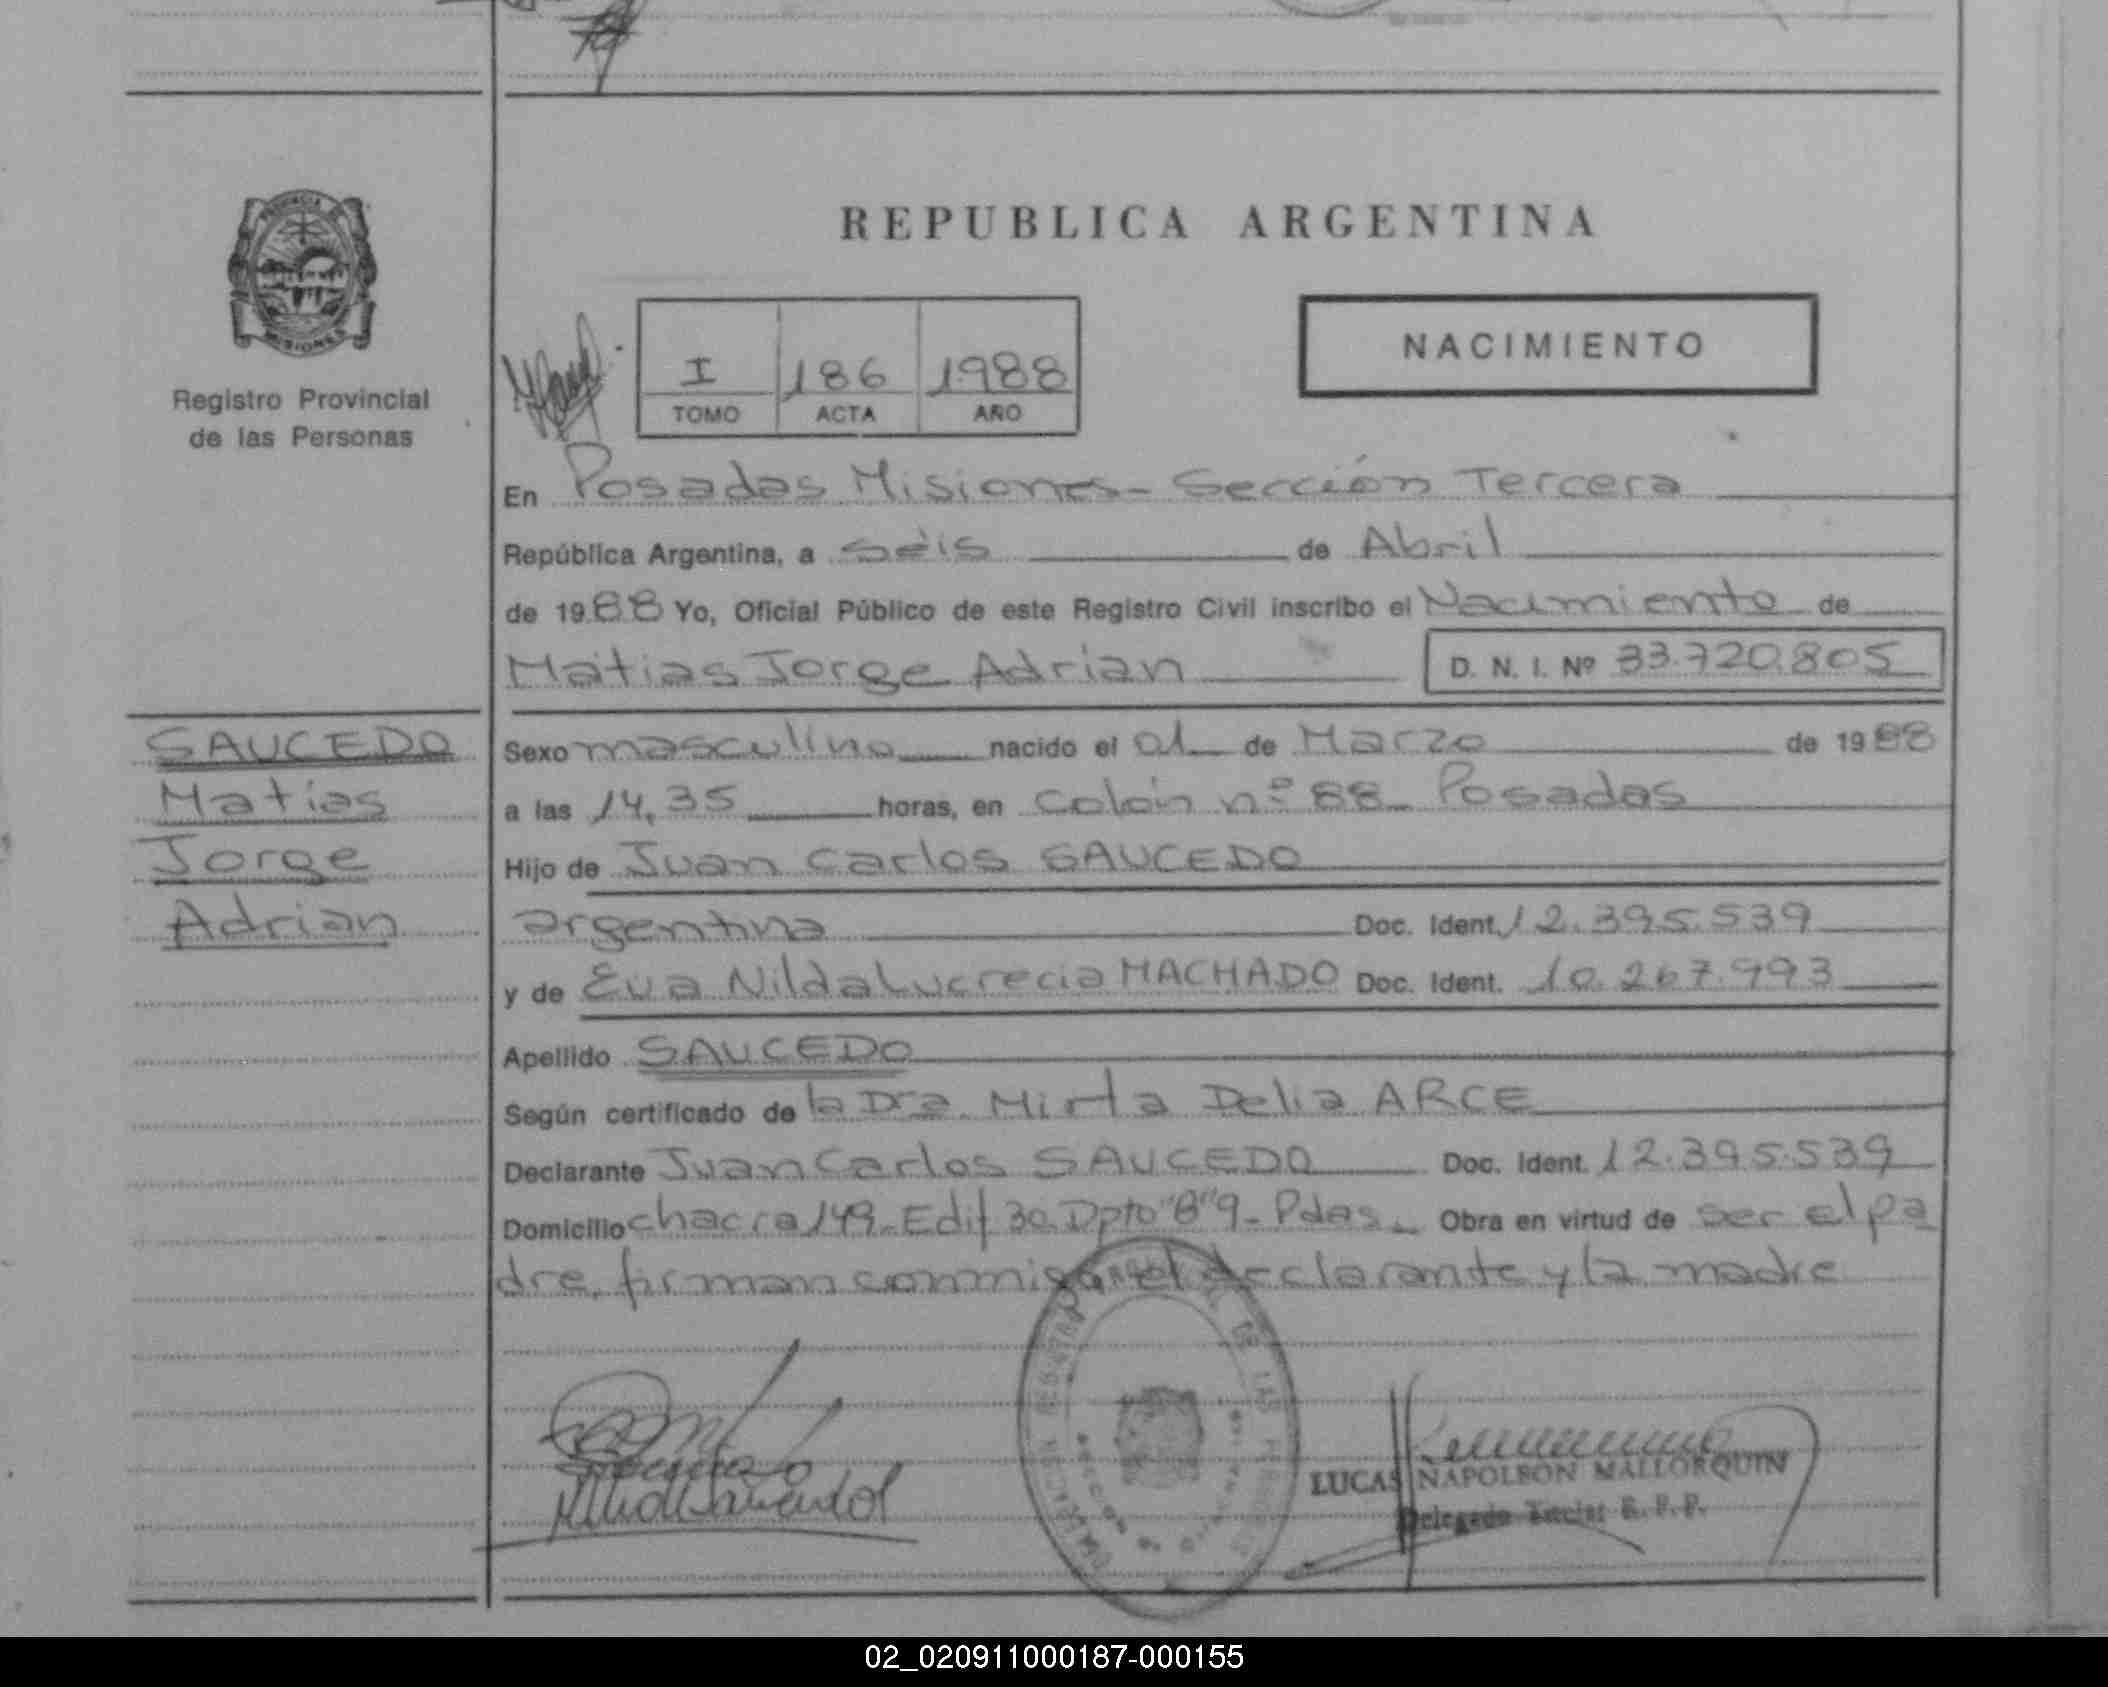 REPUBLICA ARGENTINA
PROVINCIA DE
MISIONES
Registro Provincial
de las Personas
I 186 1988
TOMO ACTA AÑO
NACIMIENTO
En Posadas Misiones - Sección Tercera
República Argentina, a seis de Abril
de 1988 Yo, Oficial Público de este Registro Civil inscribo el Nacimiento de
Matias Jorge Adrian D. N. I. Nº 33.720.805
SAUCEDO
Matias
Jorge
Adrian
Sexo masculino nacido el 01 de Marzo de 1988
a las 14,35 horas, en Colón nº 88 - Posadas
Hijo de Juan Carlos SAUCEDO
argentina Doc. Ident. 12.395.539
y de Eva Nilda Lucrecia MACHADO Doc. Ident. 10.267.993
Apellido SAUCEDO
Según certificado de la Dra. Mirta Delia ARCE
Declarante Juan Carlos SAUCEDO Doc. Ident. 12.395.539
Domicilio chacra 149 - Edif 30 Dpto "B" 9 - Pdas. - Obra en virtud de ser el pa
dre, firman conmigo el declarante y la madre
LUCAS NAPOLEON MALLORQUIN
Delegado Titular R. P. P.
02_020911000187-000155